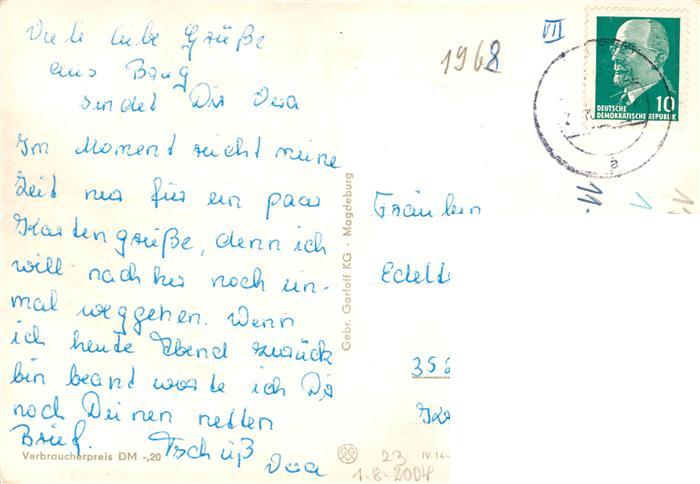 Viele liebe Grüße
aus Burg
sendet Dir Dua
Im Moment reicht meine
Zeit nur für ein paar
Kartengrüße, denn ich
will nachher noch ein-
mal weggehen. Wenn
ich heute Abend zurück
bin beantworte ich Dir
noch Deinen netten
Brief. Tschüß
Verbraucherpreis DM -,20
Gebr. Garloff KG · Magdeburg
1968
VII
10
DEUTSCHE
DEMOKRATISCHE REPUBLIK
a
11.
Fräulein
Edelt
35
IV-14-
23
1.8.2004